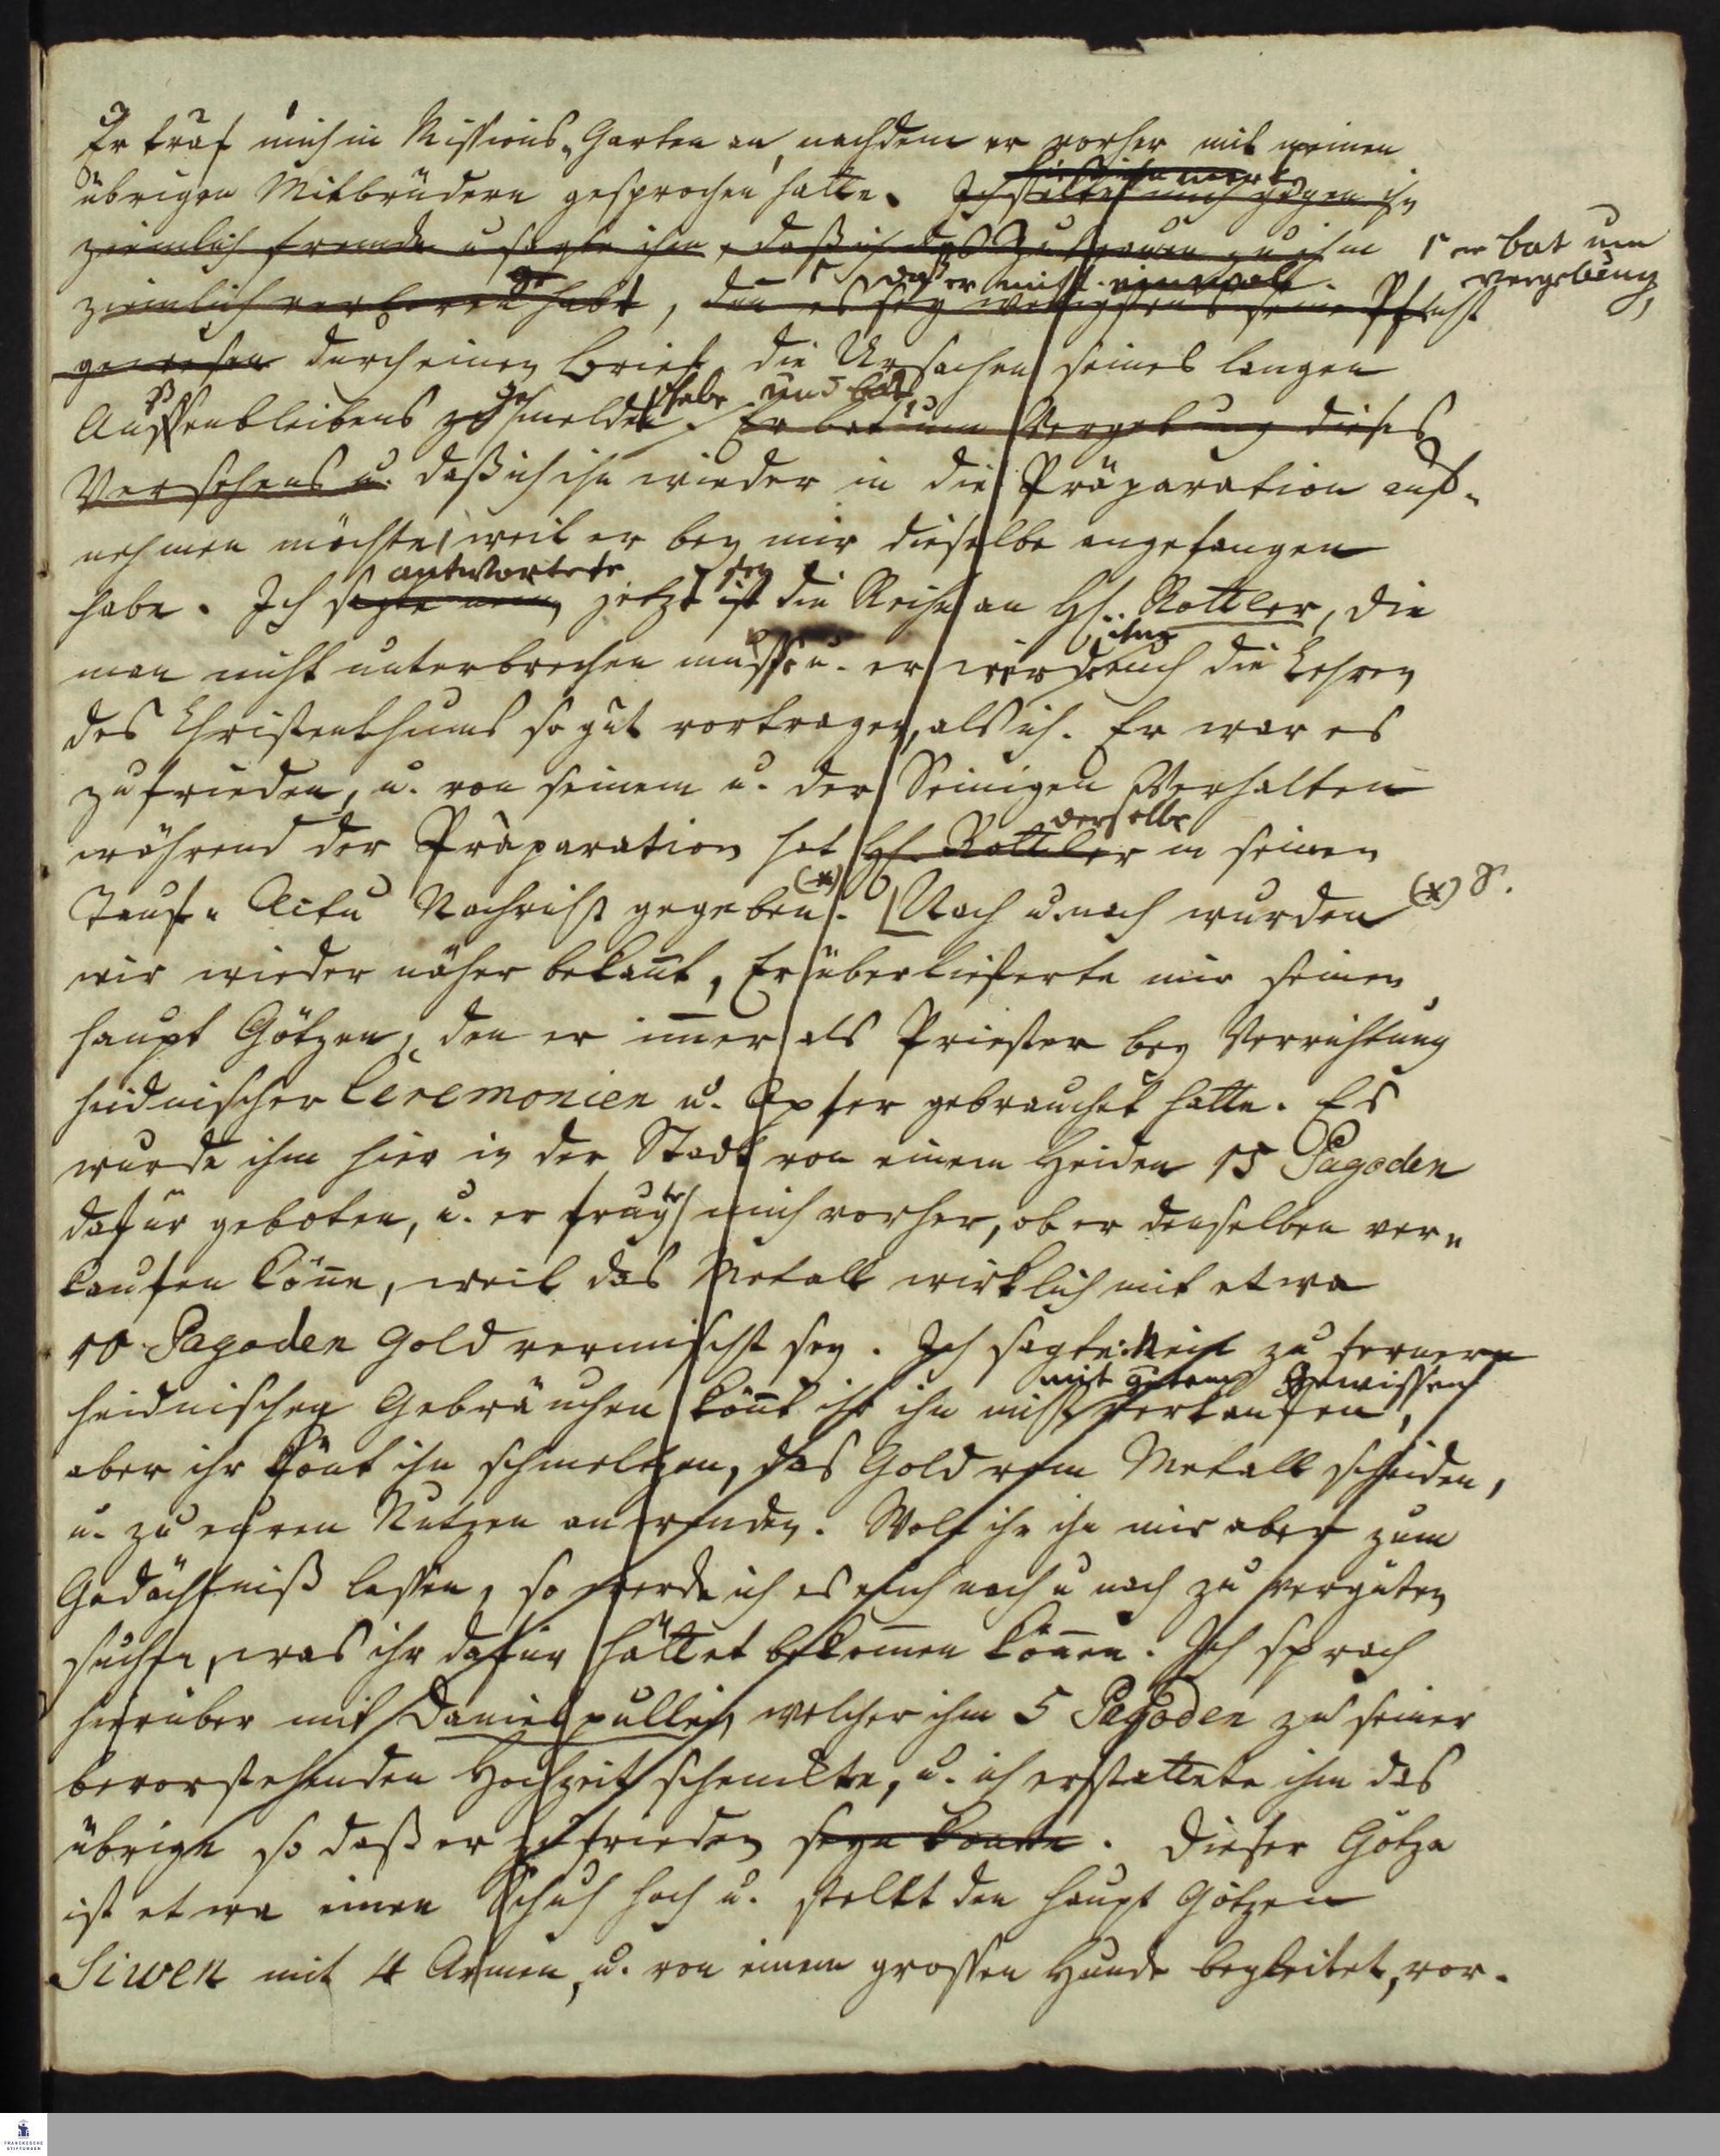 Er traf mich in Missions-Garten an, nachdem er vorher mit meinen
übrigen Mitbrüdern gesprochen hatte. Ich stellte mich gegen ihn
ziemlich fremde u. sagte ihm, daß ich das Zutrauen zu ihm
er bat um
Vergebung,
daß er nicht einmal
ziemlich verloren habe, den es sey wenigstens seine Pflicht
gewesen durch einen Brief die Ursachen seines langen
habe und bat
Aussenbleibens zu melden. Er bat um Vergebung dieses
Versehens u. daß ich ihn wieder in die Präparation auf-
nehmen möchte, weil er bey mir dieselbe angefangen
antwortete sey
habe. Ich sagte nein, jetzt ist die Reihe an H. Rottler, die
ihm
man nicht unterbrechen müsse u. er wird euch die Lehren
des Christenthums so gut vortragen, als ich. Er war es
zufrieden, u. von seinem u. der Seinigen Verhalten
derselbe
während der Präparation hat H. Rottler in seinen
Tauf-Actu Nachricht gegeben (*). Nach u. nach wurden (*) S.
wir wieder näher bekant, Er überlieferte mir seinen
haupt Götzen, den er imer als Priester bey Verrichtung
heidnischer Ceremonien u. Opfer gebrauchet hatte. Es
wurde ihm hier in der Stadt von einem Heiden 15 Pagoden
dafür geboten, u. er fragte mich vorher, ob er denselben ver-
kaufen köne, weil das Metall wirklich mit etwa
10 Pagoden Gold vermischt sey. Ich sagte: Nein zu fernern
mit gutem Gewissen
heidnischen Gebräuchen könt ihr ihn nicht verkaufen,
aber ihr könt ihn schmeltzen, das Gold vom Metall scheiden,
u. zu euren Nutzen anwenden. Wolt ihr ihn mir aber zum
Gedächtniß lassen, so werde ich es euch nach u nach zu vergüten
suchen, was ihr dafür hättet bekomen könen. Ich sprach
hierüber mit Daniel pullei, welcher ihm 5 Pagoden zu seiner
bevorstehenden Hochzeit schenckte, u. ich erstattete ihm das
übrige so daß er zufrieden seyn konte. Dieser Götze
ist etwa einen Schuh hoch u. stellt den haupt Götzen
Siwen mit 4 Armen, u. von einem grossen Hunde begleitet, vor.
FRANCKESCHE
STIFTUNGEN